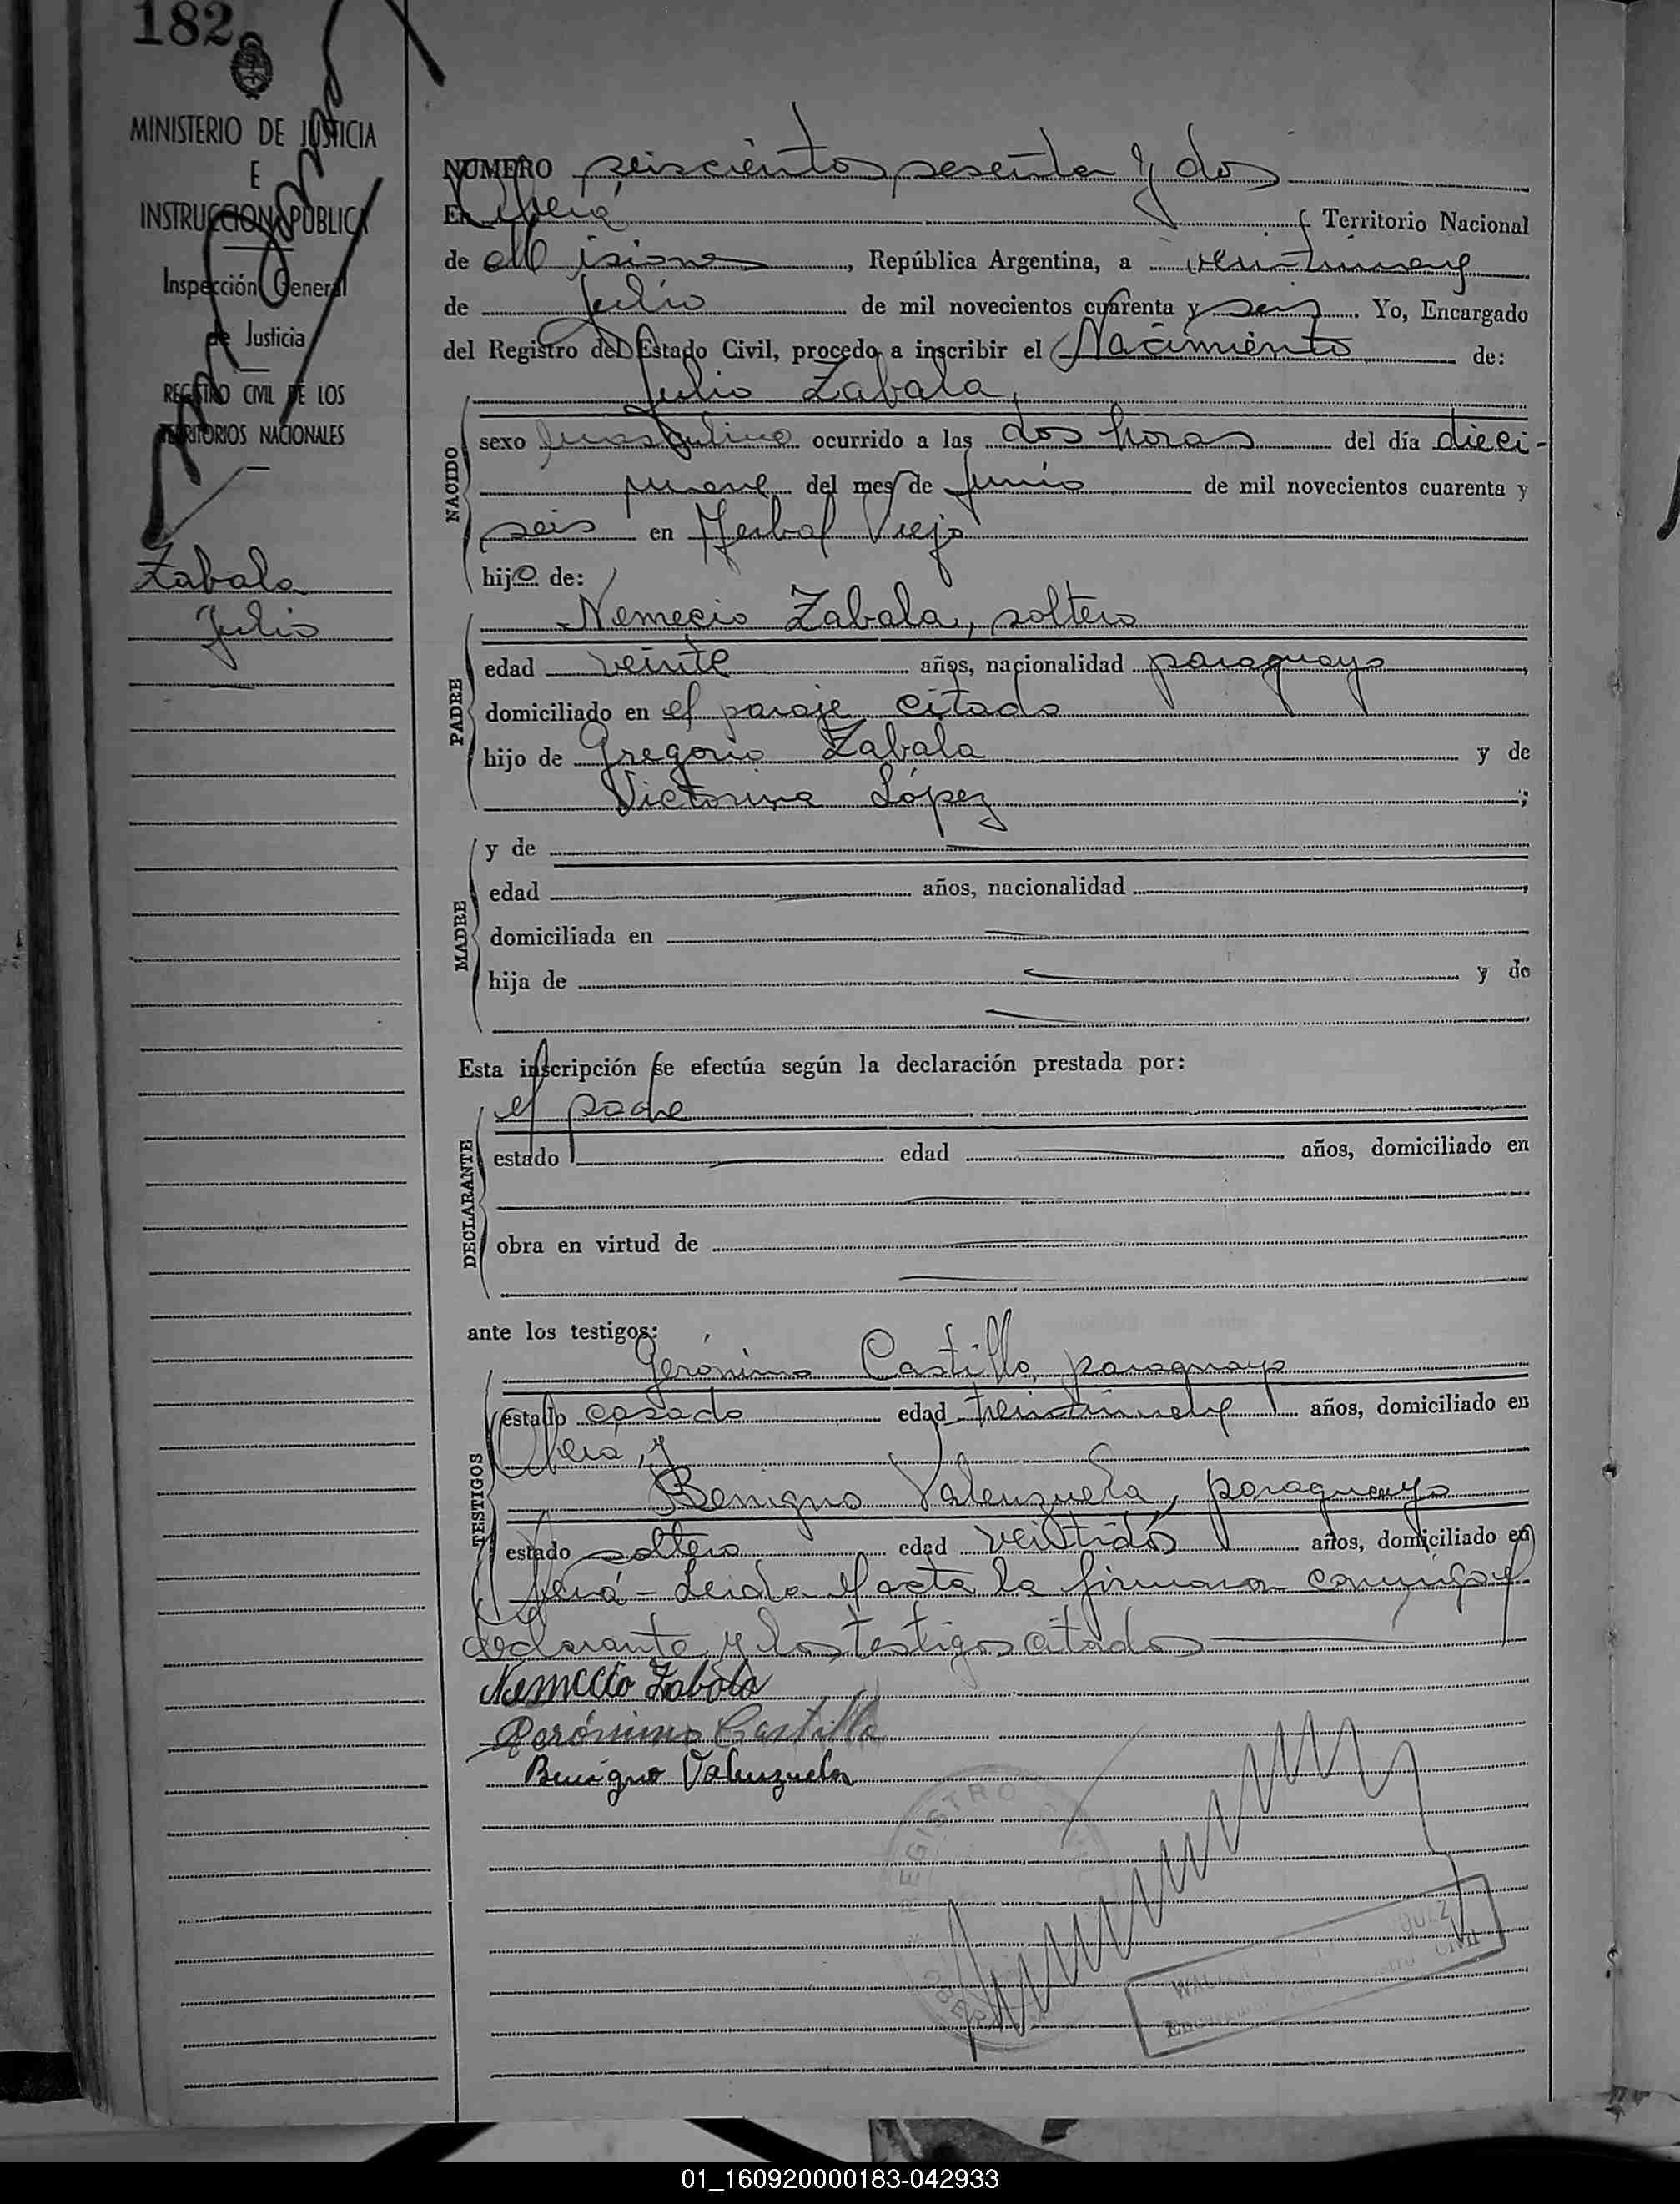 182
MINISTERIO DE JUSTICIA
E
INSTRUCCION PUBLICA
Inspección General
de Justicia
REGISTRO CIVIL DE LOS
TERRITORIOS NACIONALES
Zabala
Julio
NÚMERO seiscientos sesenta y dos
En Oberá Territorio Nacional
de Misiones, República Argentina, a veintinueve
de Julio de mil novecientos cuarenta y seis. Yo, Encargado
del Registro del Estado Civil, procedo a inscribir el Nacimiento de:
Julio Zabala,
NACIDO
sexo masculino ocurrido a las dos horas del día dieci-
nueve del mes de Junio de mil novecientos cuarenta y
seis en Yerbal Viejo
hijo de:
PADRE
Nemecio Zabala, soltero
edad veinte años, nacionalidad paraguayo,
domiciliado en el paraje citado
hijo de Gregorio Zabala y de
Victorina López;
MADRE
y de
edad años, nacionalidad
domiciliada en
hija de y de
Esta inscripción se efectúa según la declaración prestada por:
DECLARANTE
el padre
estado edad años, domiciliado en
obra en virtud de
ante los testigos:
TESTIGOS
Gerónimo Castillo, paraguayo
estado casado edad treintinueve años, domiciliado en
Oberá, y
Benigno Valenzuela, paraguayo
estado soltero edad veintidós años, domiciliado en
Oberá - Leida el acta la firmaron conmigo el
declarante y los testigos citados
Nemecio Zabala
Gerónimo Castillo
Benigno Valenzuela
REGISTRO
01_160920000183-042933